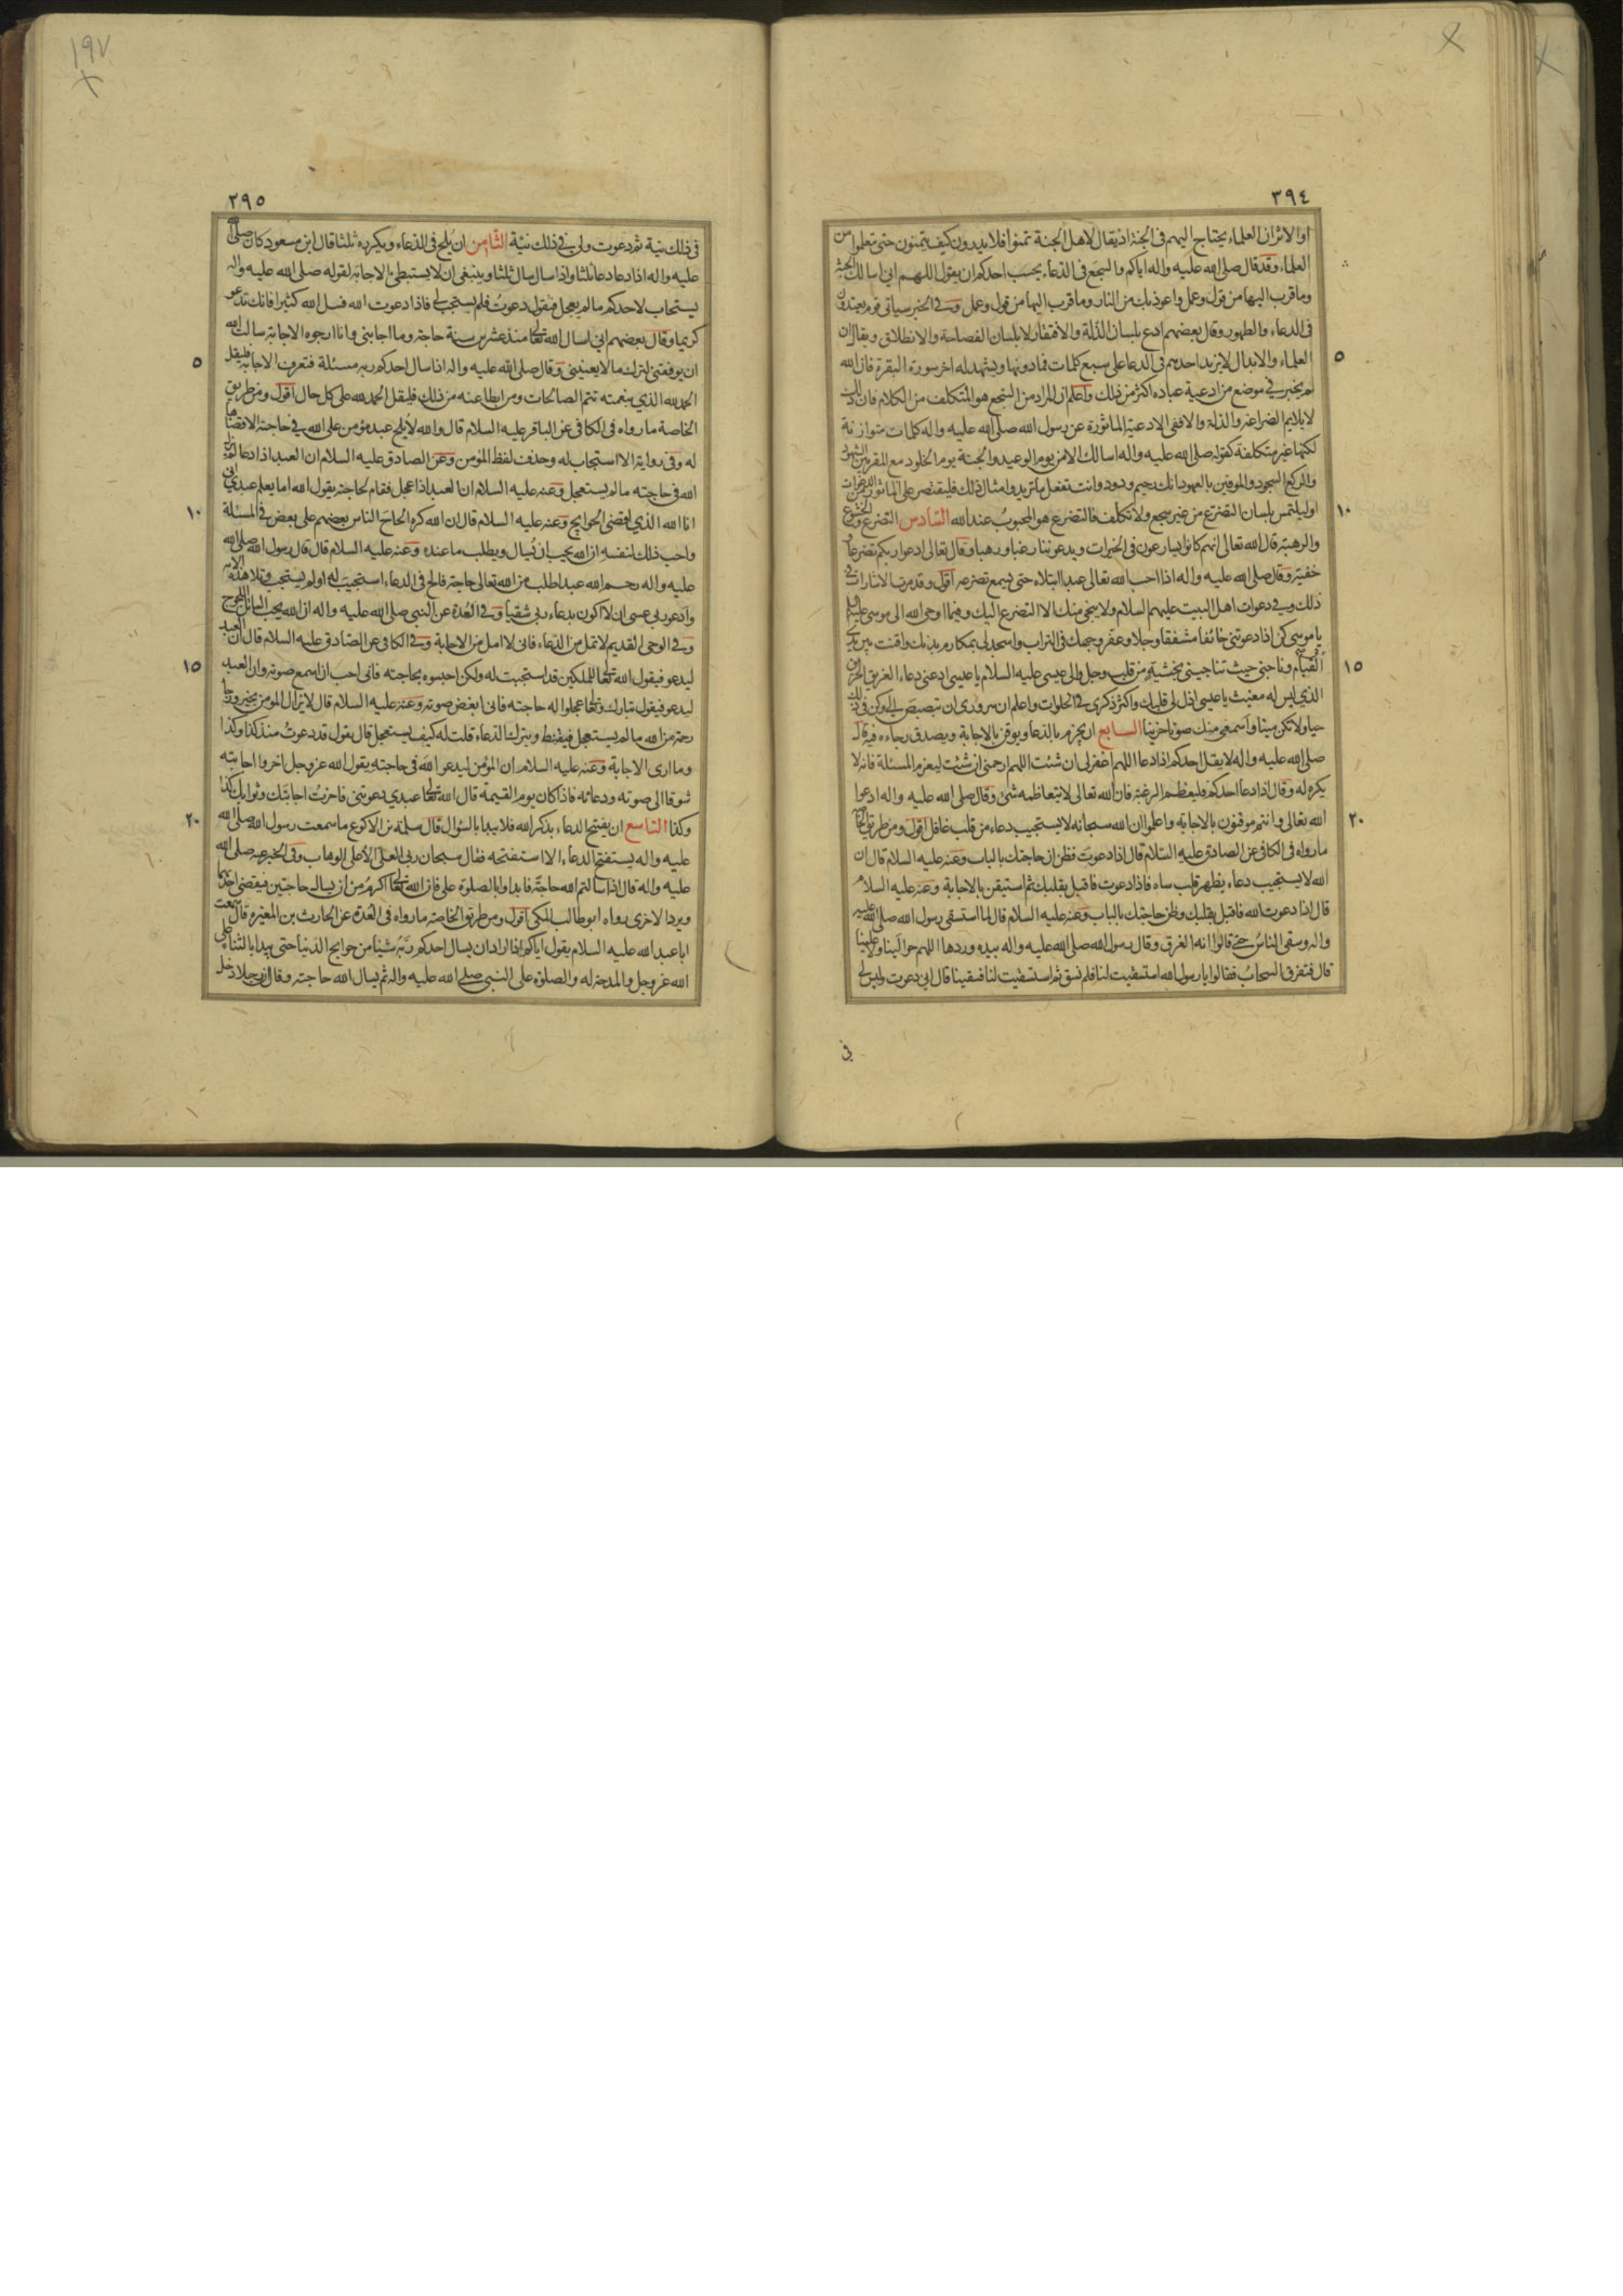 ٣٩٤
اوالاثر ان العلماء يحتاج اليهم فى الجنة اذ يقال لاهل الجنة تمنوا فلا يدرون كيف يتمنون حتى تعلموا من
العلماء وقد قال صلى الله عليه واله اياكم والسجع فى الدعاء بحسب احدكم ان يقول اللهم انى اسالك الجنة
وما قرب اليها من قول وعمل واعوذ بك من النار وما قرب اليها من قول وعمل وفى الخبر سياتى قوم يعتدون
فى الدعاء والطهور وقال بعضهم ادع بلسان الذلة والافتقار لا بلسان الفصاحة والانطلاق ويقال ان
العلماء والابدال لا يزيد احدهم فى الدعا على سبع كلمات فمادونها ويشهد له اخر سورة البقرة فان الله
لم يخبر فى موضع من ادعية عباده اكثر من ذلك واعلم ان المراد من السجع هو المتكلف من الكلام فان ذلك
لا يلايم الضراعة والذلة والا ففى الادعية الماثورة عن رسول الله صلى الله عليه واله كلمات متوازنة
لكنها غير متكلفة كقوله صلى الله عليه واله اسالك الامن يوم الوعيد والجنة يوم الخلود مع المقربين الشهود
والركع السجود والموفين بالعهود انك رحيم ودود وانت تفعل ما تريد وامثال ذلك فليقتصر على الماثور من الدعوات
او ليلتمس بلسان التضرع من غير سجع ولا تكلف فالتضرع هو المحبوب عند الله السادس التضرع والخشوع
والرهبة قال الله تعالى انهم كانوا يسارعون فى الخيرات ويدعوننا رغبا ورهبا وقال تعالى ادعوا ربكم تضرعا و
خفية وقال صلى الله عليه واله اذا احب الله تعالى عبدا ابتلاه حتى يسمع تضرعه اقول وقد مرت الاشارات فى
ذلك وفى دعوات اهل البيت عليهم السلام ولا ينجى منك الا التضرع اليك وفيما اوحى الله الى موسى عليه السلم
يا موسى كن اذا دعوتنى خائفا مشفقا وجلا وعفر وجهك فى التراب واسجد لى بمكارم بدنك واقنت بين يدى
القيام وناجنى حيث تناجينى بخشية من قلب وجل والى عيسى عليه السلام يا عيسى ادعنى دعاء الغريق الحزين
الذى ليس له مغيث يا عيسى اذل لى قلبك واكثر ذكرى فى الخلوات واعلم ان سرورى ان تبصبص الى وكن فى ذلك
حيا ولا تكن ميتا واسمعنى منك صوتا حزينا السابع ان يجزم بالدعا ويوقن بالاجابة ويصدق رجاءه فيه قال
صلى الله عليه واله لا يقل احدكم اذا دعا اللهم اغفرلى ان شئت اللهم ارحمنى ان شئت ليعزم المسئلة فانه لا
يكره له وقال اذا دعا احدكم فليعظم الرغبة فان الله تعالى لا يتعاظمه شئ وقال صلى الله عليه واله ادعوا
الله تعالى وانتم موقنون بالاجابة واعلموا ان الله سبحانه لا يستجيب دعاء من قلب غافل اقول ومن طريق الخاصة
ما رواه فى الكافى عن الصادق عليه السلام قال اذا دعوت فظن ان حاجتك بالباب وعنه عليه السلام قال ان
الله لا يستجيب دعاء بظهر قلب ساه فاذا دعوت فاقبل بقلبك ثم استيقن بالاجابة وعنه عليه السلام
قال اذا دعوت الله فاقبل بقلبك وظن حاجتك بالباب وعنه عليه السلام قال لما استسقى رسول الله صلى الله عليه
واله وسقى الناس حتى قالوا انه الغرق وقال رسول الله صلى الله عليه واله بيده وردها اللهم حوالينا ولا علينا
قال فتفرق السحاب فقالوا يا رسول الله استسقيت لنا فلم نسق ثم استسقيت لنا فسقينا قال انى دعوت وليس لى
فى
٥
١٠
١٥
٢٠
١٩٧
٢٩٥
فى ذلك نية ثم دعوت ولى فى ذلك نية الثامن ان يلح فى الدعاء ويكرره ثلثا قال ابن مسعود كان صلى الله
عليه واله اذا دعا دعا ثلثا واذا سال سال ثلثا وينبغى ان لا يستبطئ الاجابة لقوله صلى الله عليه واله
يستجاب لاحدكم ما لم يعجل فيقول دعوت فلم يستجب لى فاذا دعوت الله فسل الله كثيرا فانك تدعو
كريما وقال بعضهم انى اسال الله تعالى منذ عشرين سنة حاجة وما اجابنى وانا ارجوه الاجابة سالت الله
ان يوفقنى لترك ما لا يعنينى وقال صلى الله عليه واله اذا سال احدكم ربه مسئلة فتعرف الاجابة فليقل
الحمد لله الذى بنعمته تتم الصالحات ومن ابطا عنه من ذلك فليقل الحمد لله على كل حال اقول ومن طريق
الخاصة ما رواه فى الكافى عن الباقر عليه السلام قال والله لا يلح عبد مؤمن على الله فى حاجة الا قضاها
له وفى رواية الا استجاب له وحذف لفظ المؤمن وعن الصادق عليه السلام ان العبد اذا دعا لم يزل
الله فى حاجته ما لم يستعجل وعنه عليه السلام ان العبد اذا عجل فقام لحاجته يقول الله اما يعلم عبدى انى
انا الله الذى اقضى الحوايج وعنه عليه السلام قال ان الله كره الحاح الناس بعضهم على بعض فى المسئلة
واحب ذلك لنفسه ان الله يحب ان يسال ويطلب ما عنده وعنه عليه السلام قال قال رسول الله صلى الله
عليه واله رحم الله عبدا طلب من الله تعالى حاجة فالح فى الدعاء استجيب له او لم يستجب وتلا هذه الاية
وادعو ربى عسى ان لا اكون بدعاء ربى شقيا وفى العدة عن النبى صلى الله عليه واله ان الله يحب السائل اللحوح
وفى الوحى القديم لا تمل من الدعاء فانى لا امل من الاجابة وفى الكافى عن الصادق عليه السلام قال ان العبد
ليدعو فيقول الله تعالى للملكين قد استجبت له ولكن احبسوه بحاجته فانى احب ان اسمع صوته وان العبد
ليدعو فيقول تبارك وتعالى عجلوا له حاجته فانى ابغض صوته وعنه عليه السلام قال لا يزال المؤمن بخير ورجا
رحمة من الله ما لم يستعجل فيقنط ويترك الدعاء قلت له كيف يستعجل قال يقول قد دعوت منذ كذا وكذا
وما ارى الاجابة وعنه عليه السلام ان المؤمن ليدعو الله فى حاجته يقول الله عز وجل اخروا اجابته
شوقا الى صوته ودعائه فاذا كان يوم القيمة قال الله تعالى عبدى دعوتنى فاخرت اجابتك وثوابك كذا
وكذا التاسع ان يفتتح الدعاء بذكر الله فلا يبدا بالسؤال قال سلمة بن الاكوع ما سمعت رسول الله صلى الله
عليه واله يستفتح الدعاء الا استفتحه فقال سبحان ربى العلى الاعلى الوهاب وفى الخبر عنه صلى الله
عليه واله قال اذا سالتم الله حاجة فابداوا بالصلوة على فان الله تعالى اكرم من ان يسال حاجتين فيقضى احدهما
ويرد الاخرى رواه ابو طالب المكى اقول ومن طريق الخاصة ما رواه فى العدة عن الحارث بن المغيرة قال سمعت
ابا عبد الله عليه السلام يقول اياكم اذا اراد ان يسال احدكم ربه شيئا من حوايج الدنيا حتى يبدا بالثناء على
الله عز وجل والمدحة له والصلوة على النبى صلى الله عليه واله ثم يسال الله حاجته وقال ان رجلا دخل
٥
١٠
١٥
٢٠